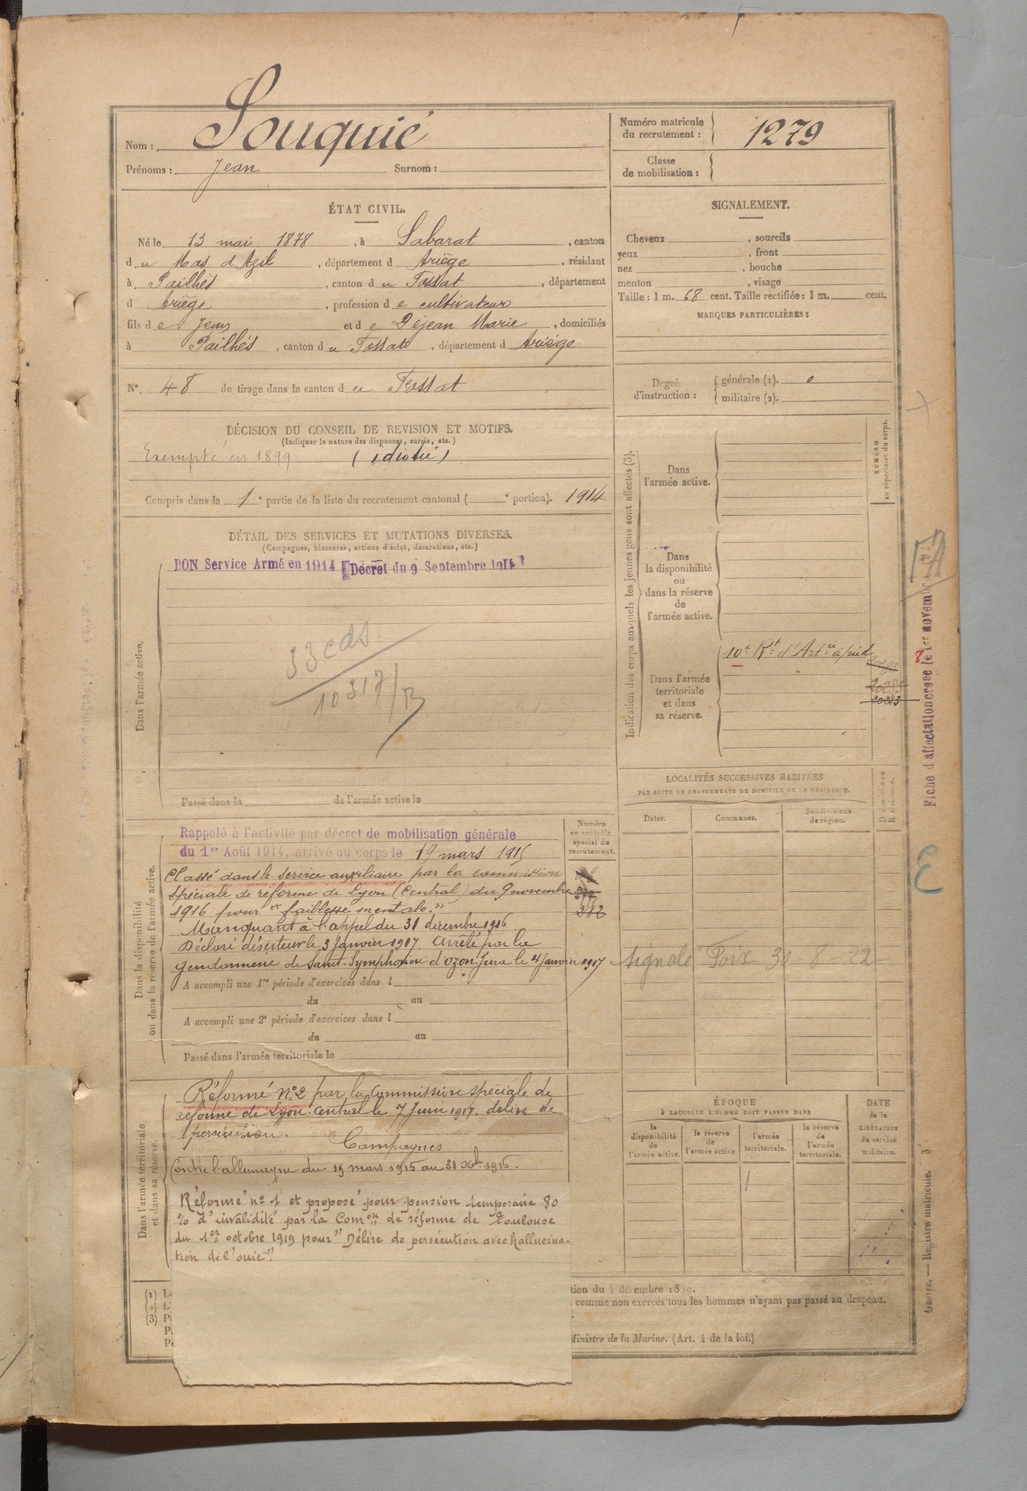 Nom : Souquié
Prénoms : Jean Surnom :
Numéro matricule du recrutement : 1279
Classe de mobilisation :
ÉTAT CIVIL.
Né le 13 mai 1878, à Sabarat, canton
du Mas d'Azil, département d Ariège, résidant
à Pailhès, canton du Fossat, département
d Ariège, profession de cultivateur
fils de Jean et de Dejean Marie, domiciliés
à Pailhès, canton du Fossat, département d Ariège
N° 48 de tirage dans le canton du Fossat
SIGNALEMENT.
Cheveux , sourcils
yeux , front
nez , bouche
menton , visage
Taille : 1 m. 68 cent. Taille rectifiée : 1 m. cent.
MARQUES PARTICULIÈRES :
Degré d'instruction : générale (1). 0
militaire (2).
DÉCISION DU CONSEIL DE REVISION ET MOTIFS.
(Indiquer la nature des dispenses, sursis, etc.)
Exempté en 1899 (idiotie)
Compris dans la 1e partie de la liste du recrutement cantonal ( e portion). 1914
DÉTAIL DES SERVICES ET MUTATIONS DIVERSES.
(Campagnes, blessures, actions d'éclat, décorations, etc.)
BON Service Armé en 1914 [Décret du 9 Septembre 1914]
33 cds
10317/B
Dans l'armée active.
Passé dans la de l'armée active le
Indication des corps auxquels les jeunes gens sont affectés (3).
Dans l'armée active.
Dans la disponibilité ou dans la réserve de l'armée active.
Dans l'armée territoriale et dans sa réserve.
10e Rt d'Artie à pied
20285
20283
NUMÉRO au répertoire du corps.
Fiche d'affectation créée le 1er novem
LOCALITÉS SUCCESSIVES HABITÉES
PAR SUITE DE CHANGEMENTS DE DOMICILE OU DE RÉSIDENCE.
Dates. Communes. Subdivisions de région.
signalé Foix 30-8-22
Numéro au contrôle spécial du recrutement.
Dans la disponibilité ou dans la réserve de l'armée active.
Rappelé à l'activité par décret de mobilisation générale
du 1er Août 1914, arrivé au corps le 19 mars 1915
Classé dans le service auxiliaire par la commission
spéciale de réforme de Lyon (Central) du 9 novembre
1916 pour "faiblesse mentale."
Manquant à l'appel du 31 décembre 1916
Déclaré déserteur le 3 janvier 1917. Arrêté par la
gendarmerie de Saint-Symphorien d'ozon Isère le 4 janvier 1917
A accompli une 1re période d'exercices dans l
du au
A accompli une 2e période d'exercices dans l
du au
Passé dans l'armée territoriale le
Dans l'armée territoriale et dans sa réserve.
Réformé n°2 par la Commission spéciale de
réforme de Lyon central le 7 Juin 1917. délire de
persécution.
Campagnes
Contre l'allemagne du 19 mars 1915 au 31 Xbre 1916.
Réformé n° 1 et proposé pour pension temporaire 80
% d'invalidité par la Comon de réforme de Toulouse
du 1er octobre 1919 pour "Délire de persécution avec hallucina-
tion de l'ouie".
ÉPOQUE
À LAQUELLE L'HOMME DOIT PASSER DANS
la disponibilité de l'armée active.
la réserve de l'armée active.
l'armée territoriale.
la réserve de l'armée territoriale.
DATE de la LIBÉRATION du service militaire.
(1)
(2)
(3)
comme non exercés tous les hommes n'ayant pas passé au drapeau.
Ministre de la Marine. (Art. 4 de la loi.)
Guerre. — Registre matricule. 3